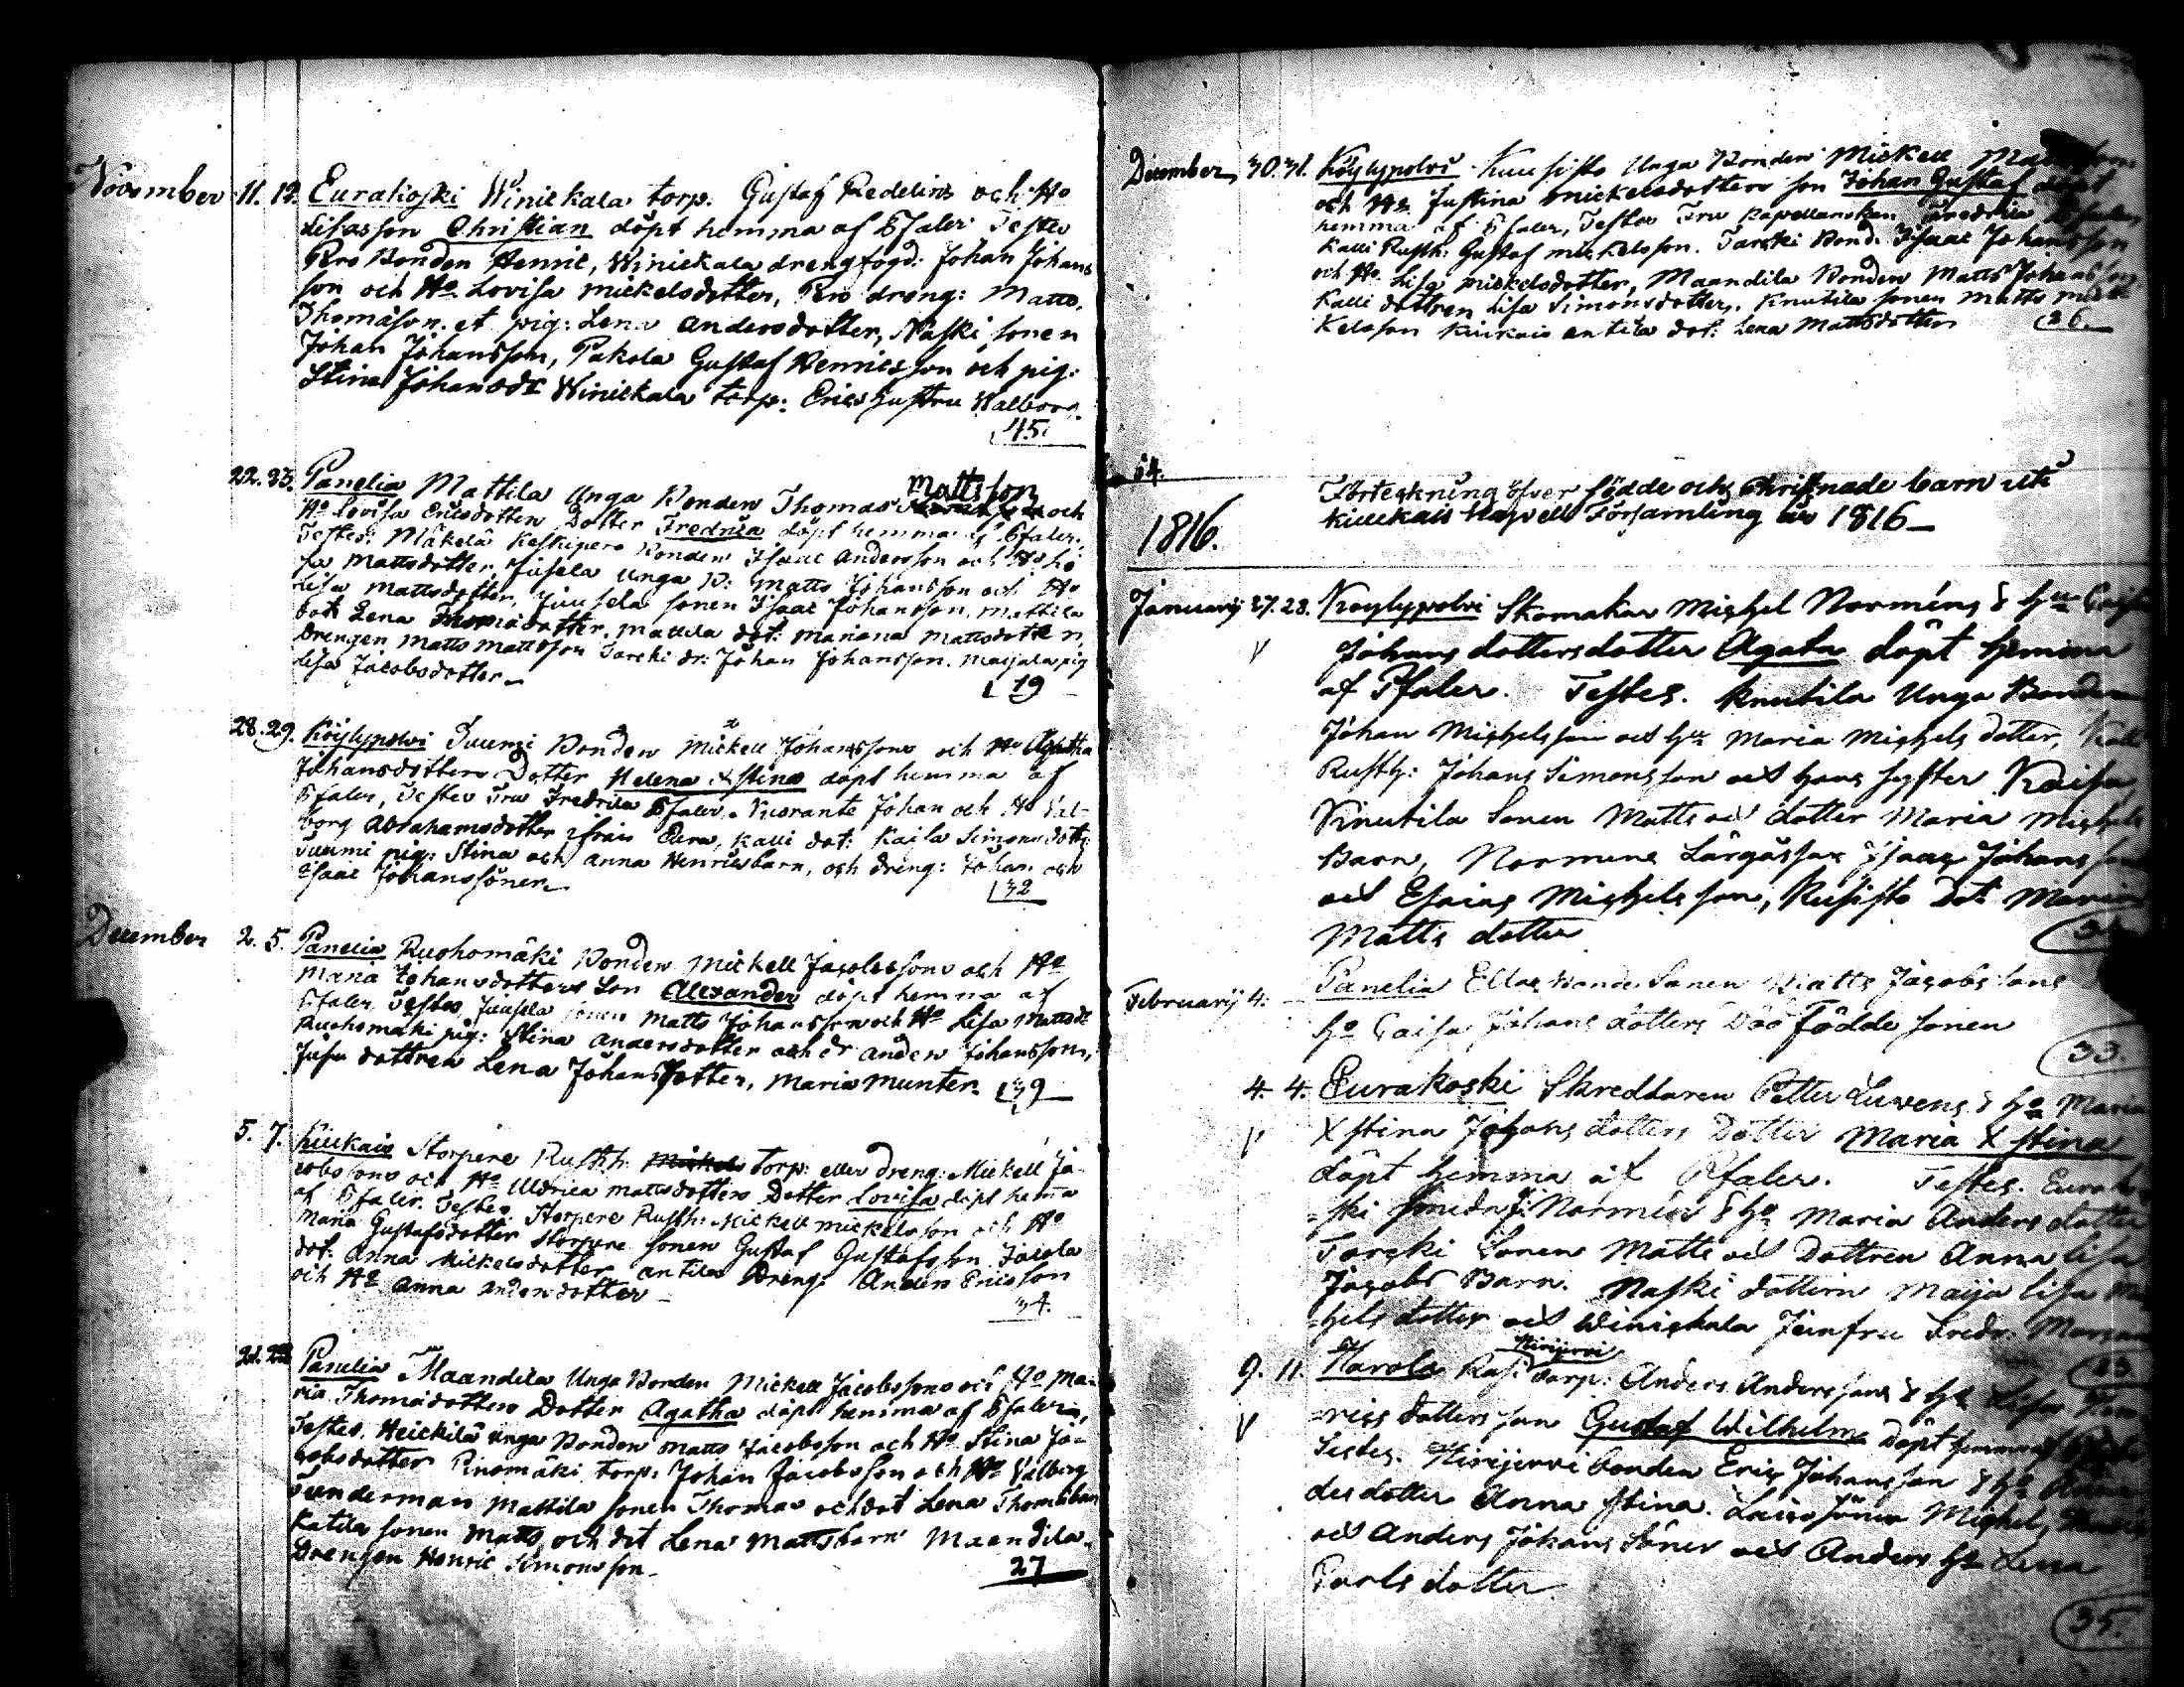 November 11. 12. Eurakoski Winickala torp. Gustaf Redelins och Ho
Lisas son Christian döpt hemma af Pfaler Testes
Pro Bonden Henric, Winickala drengfogd: Johan Johans
son och Ho Lovisa Mickelsdotter, Pro dreng: Matts
Thomasson. et pig: Lena Andersdotter, Naski sonen
Johan Johansson, Pakola Gustaf Henricsson och pig:
Stina Johansdr Winickala torp: Erics hustru Walborg.
45.
22. 25. Panelia Mattila Unga Bonden Thomas Mattsson och
Ho Lovisa Ericsdotters Dotter Fredrica döpt hemma af Pfaler.
Testes: Mäkelä Keskipero Bonden Isaac Andersson och Ho
sa Mattsdotter, Juusela unga B: Matts Johansson och Ho
Lisa Mattsdotter, Juusela sonen Isaac Johansson, Mattila
dot: Lena Thomasdotter. Mattila dot: Mariana Mattsdotter
Drengen Matts Mattsson Tarcki dr: Johan Johansson. Maijala pig
Lisa Jacobsdotter
19
28. 29. Köylypolvi Tuumi Bonden Mickell Johanssons och Ho Agatha
Johansdotters Dotter Helena Xstina döpt hemma af
Pfaler, Testes Fru Fredrica Pfaler, Nuorante Johan och Ho Val-
borg Abrahamsdotter ifrån Eura, Kalli dot: Kaisa Simonsdotter
Tuumi pig: Stina och Anna Henricsbarn, och dreng: Johan och
Isaac Johanssöner
32
December 2. 5. Panelia Ruohomäki Bonden Mickell Jacobssons och Ho
Maria Johansdotters Son Alexander döpt hemma af
Pfaler Testes Juusela sonen Matts Johansson och Ho Lisa Mattsdr
Ruohomäki pig: Stina Andersdotter och dr Anders Johansson,
Juusela dottren Lena Johansdotter, Maria Munter.
39
5. 7. Kiukais Storpere Rusth: torp: eller dreng: Mickell Ja-
cobssons och Ho Uldrica Mattsdotters Dotter Lovisa döpt hemma
af Pfaler. Testes. Storpere Rusth: Mickell Mickelsson och Ho
Maria Gustafsdotter Storpere sonen Gustaf Gustafsson Jacola
dot: Anna Mickelsdotter Antila Dreng: Anders Ericsson
och Ho Anna Andersdotter
34.
Panelia Maandila Unga Bonden Mickell Jacobssons och Ho Ma-
ria Thomasdotters Dotter Agatha döpt hemma af Pfaler,
Testes. Heickilä unga Bonden Matts Jacobsson och Ho Stina Ja-
cobsdotter Pinomäki torp: Johan Jacobsson och Ho Valborg
Sunderman Mattila sonen Thomas och dot Lena Thomæbarn
Katila sonen Matts och dot Lena Mattsbarn Maandila
Drengen Henric Simonsson
27
December 30. 31. Köylypolvi Kuusisto Unga Bonden Mickell
och Ho Justina Mickelsdotters son Johan Gustaf döpt
hemma af Pfaler, Testes Fru Kapellanskan Fredrica Pfaler,
Kalli Rusth: Gustaf Mickelsson. Tarcki Bond: Isaac Johansson
och Ho Lisa Mickelsdotter, Maandila Bonden Matts Johansson
Kalli dottren Lisa Simonsdotter, Knutila sonen Matts Mic-
kelsson Kiukais Antila dot: Lena Mattsdotter
26.
54.
Förteckning öfver födde och Christnade barn uti
Kiuckais Kapell Församling år 1816
1816.
Januarij 27. 28. Köylypolvi Skomakar Michel Norméns & Hu Caisa
Johans dotters dotter Agata döpt hemma
af Pfaler. Testes. Knutila Unga Bonden
Johan Michelsson och Hu Maria Michels dotter, Kalli
Rusth: Johans Simonsson och hans syster Kaisa,
Knutila Sonen Matts och dotter Maria Michels
Barn, Normens Isaac Johansson
och Esaias Michelsson, Kusisto Dot: Maria
Matts dotter
Februarij 4. Panelia Bonde Sonen Matts Jacobs sons
Ho Caisa Johans dotters Död födde sonen
33.
4. 4. Eurakoski Skreddaren Petter Luvens & Ho Maria
Xstina Johans dotters Dotter Maria Xstina
döpt hemma af Pfaler. Testes. Eurako
ski smeden J: Normén & Ho Maria Anders dotter
Tarcki Sonen Matts och Dottren Anna Lisa
Jacobs Barn. Naski dottern Maija Lisa Mic
hels dotter och Winickala Jumfru Fredr.
9. 11. Harola Rus: Hirijervi Torp: Anders Anderssons & Ho Lisa Hen-
rics dotters son Gustaf Wilhelm döpt hemma af
Testes. Hirijervi Bonden Eric Johansson & Ho
des dotter Anna Stina. söner Michel,
och Anders Johans Söner och Anders Ho Lena
Carls dotter
35.